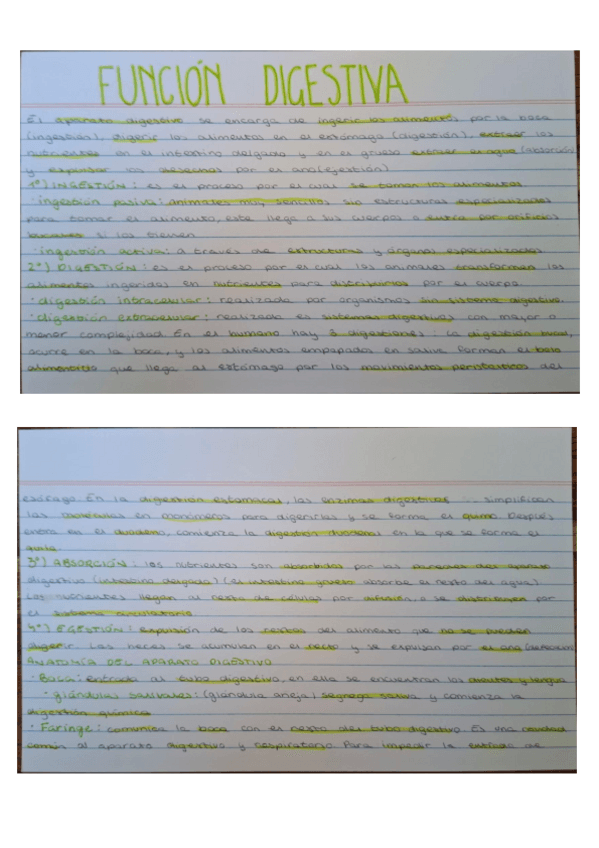 FUNCIÓN DIGESTIVA
El aparato digestivo se encarga de ingerir los alimentos por la boca
(ingestión), digerir los alimentos en el estómago (digestión), extraer los
nutrientes en el intestino delgado y en el grueso extraer el agua (absorción)
y expulsar los desechos por el ano (ejestión)
1º) INGESTIÓN: es el proceso por el cual se toman los alimentos
· ingestión pasiva: animales muy sencillos, sin estructuras especializadas
para tomar el alimento, este llega a sus cuerpos a entra por orificios
bucales si los tienen
· ingestión activa: a través de estructuras y órganos especializados
2º) DIGESTIÓN: es el proceso por el cual los animales transforman los
alimentos ingeridos en nutrientes para distribuirlos por el cuerpo.
· digestión intracelular: realizada por organismos sin sistema digestivo.
· digestión extracelular: realizada es sistemas digestivos con mayor o
menor complejidad. En el humano hay 3 digestiones: la digestión bucal,
ocurre en la boca, y los alimentos empapados en saliva forman el bolo
alimenticio que llega al estómago por los movimientos peristálticos del
esófago. En la digestión estomacal, las enzimas digestivas simplifican
las en monómeros para digerirlas y se forma el quimo. Después
entra en el duodeno, comienza la digestión duodenal en la que se forma el
quilo.
3º) ABSORCIÓN: los nutrientes son absorbidos por las paredes del aparato
digestivo (intestino delgado) (el intestino grueso absorbe el resto del agua)
Los nutrientes llegan al resto de células por difusión, o se distribuyen por
el sistema circulatorio
4º) EGESTIÓN: expulsión de los restos del alimento que no se pueden
digerir. Las heces se acumulan en el recto y se expulsan por el ano (defecación)
ANATOMÍA DEL APARATO DIGESTIVO
· Boca: entrada al tubo digestivo, en ella se encuentran los dientes y lengua
· glándulas salivales: (glándula aneja) segrega saliva y comienza la
digestión química
· Faringe: comunica la boca con el resto del tubo digestivo. Es una cavidad
común al aparato digestivo y respiratorio. Para impedir la entrada de